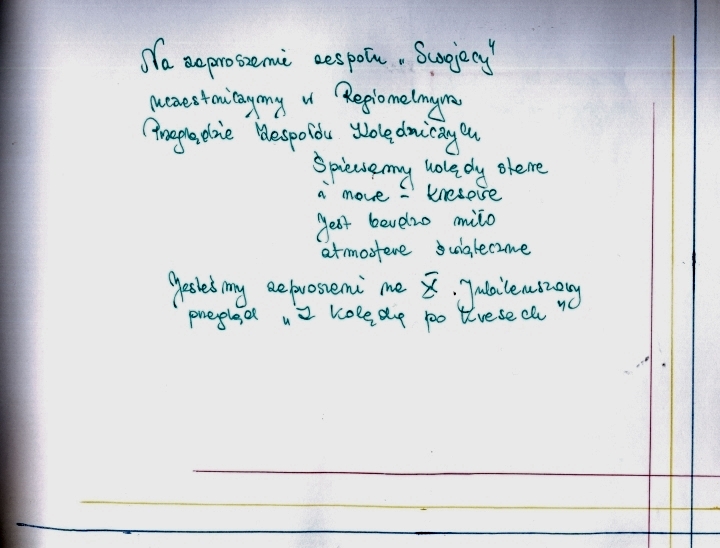 Na zaproszenie zespołu „Swojacy"
uczestniczymy w Regionalnym
Przeglądzie Zespołów Kolędniczych
Śpiewamy kolędy stare
i nowe - kresowe
Jest bardzo miło
atmosfera świąteczna
Jesteśmy zaproszeni na X. Jubileuszowy
przegląd „Z kolędą po Kresach"